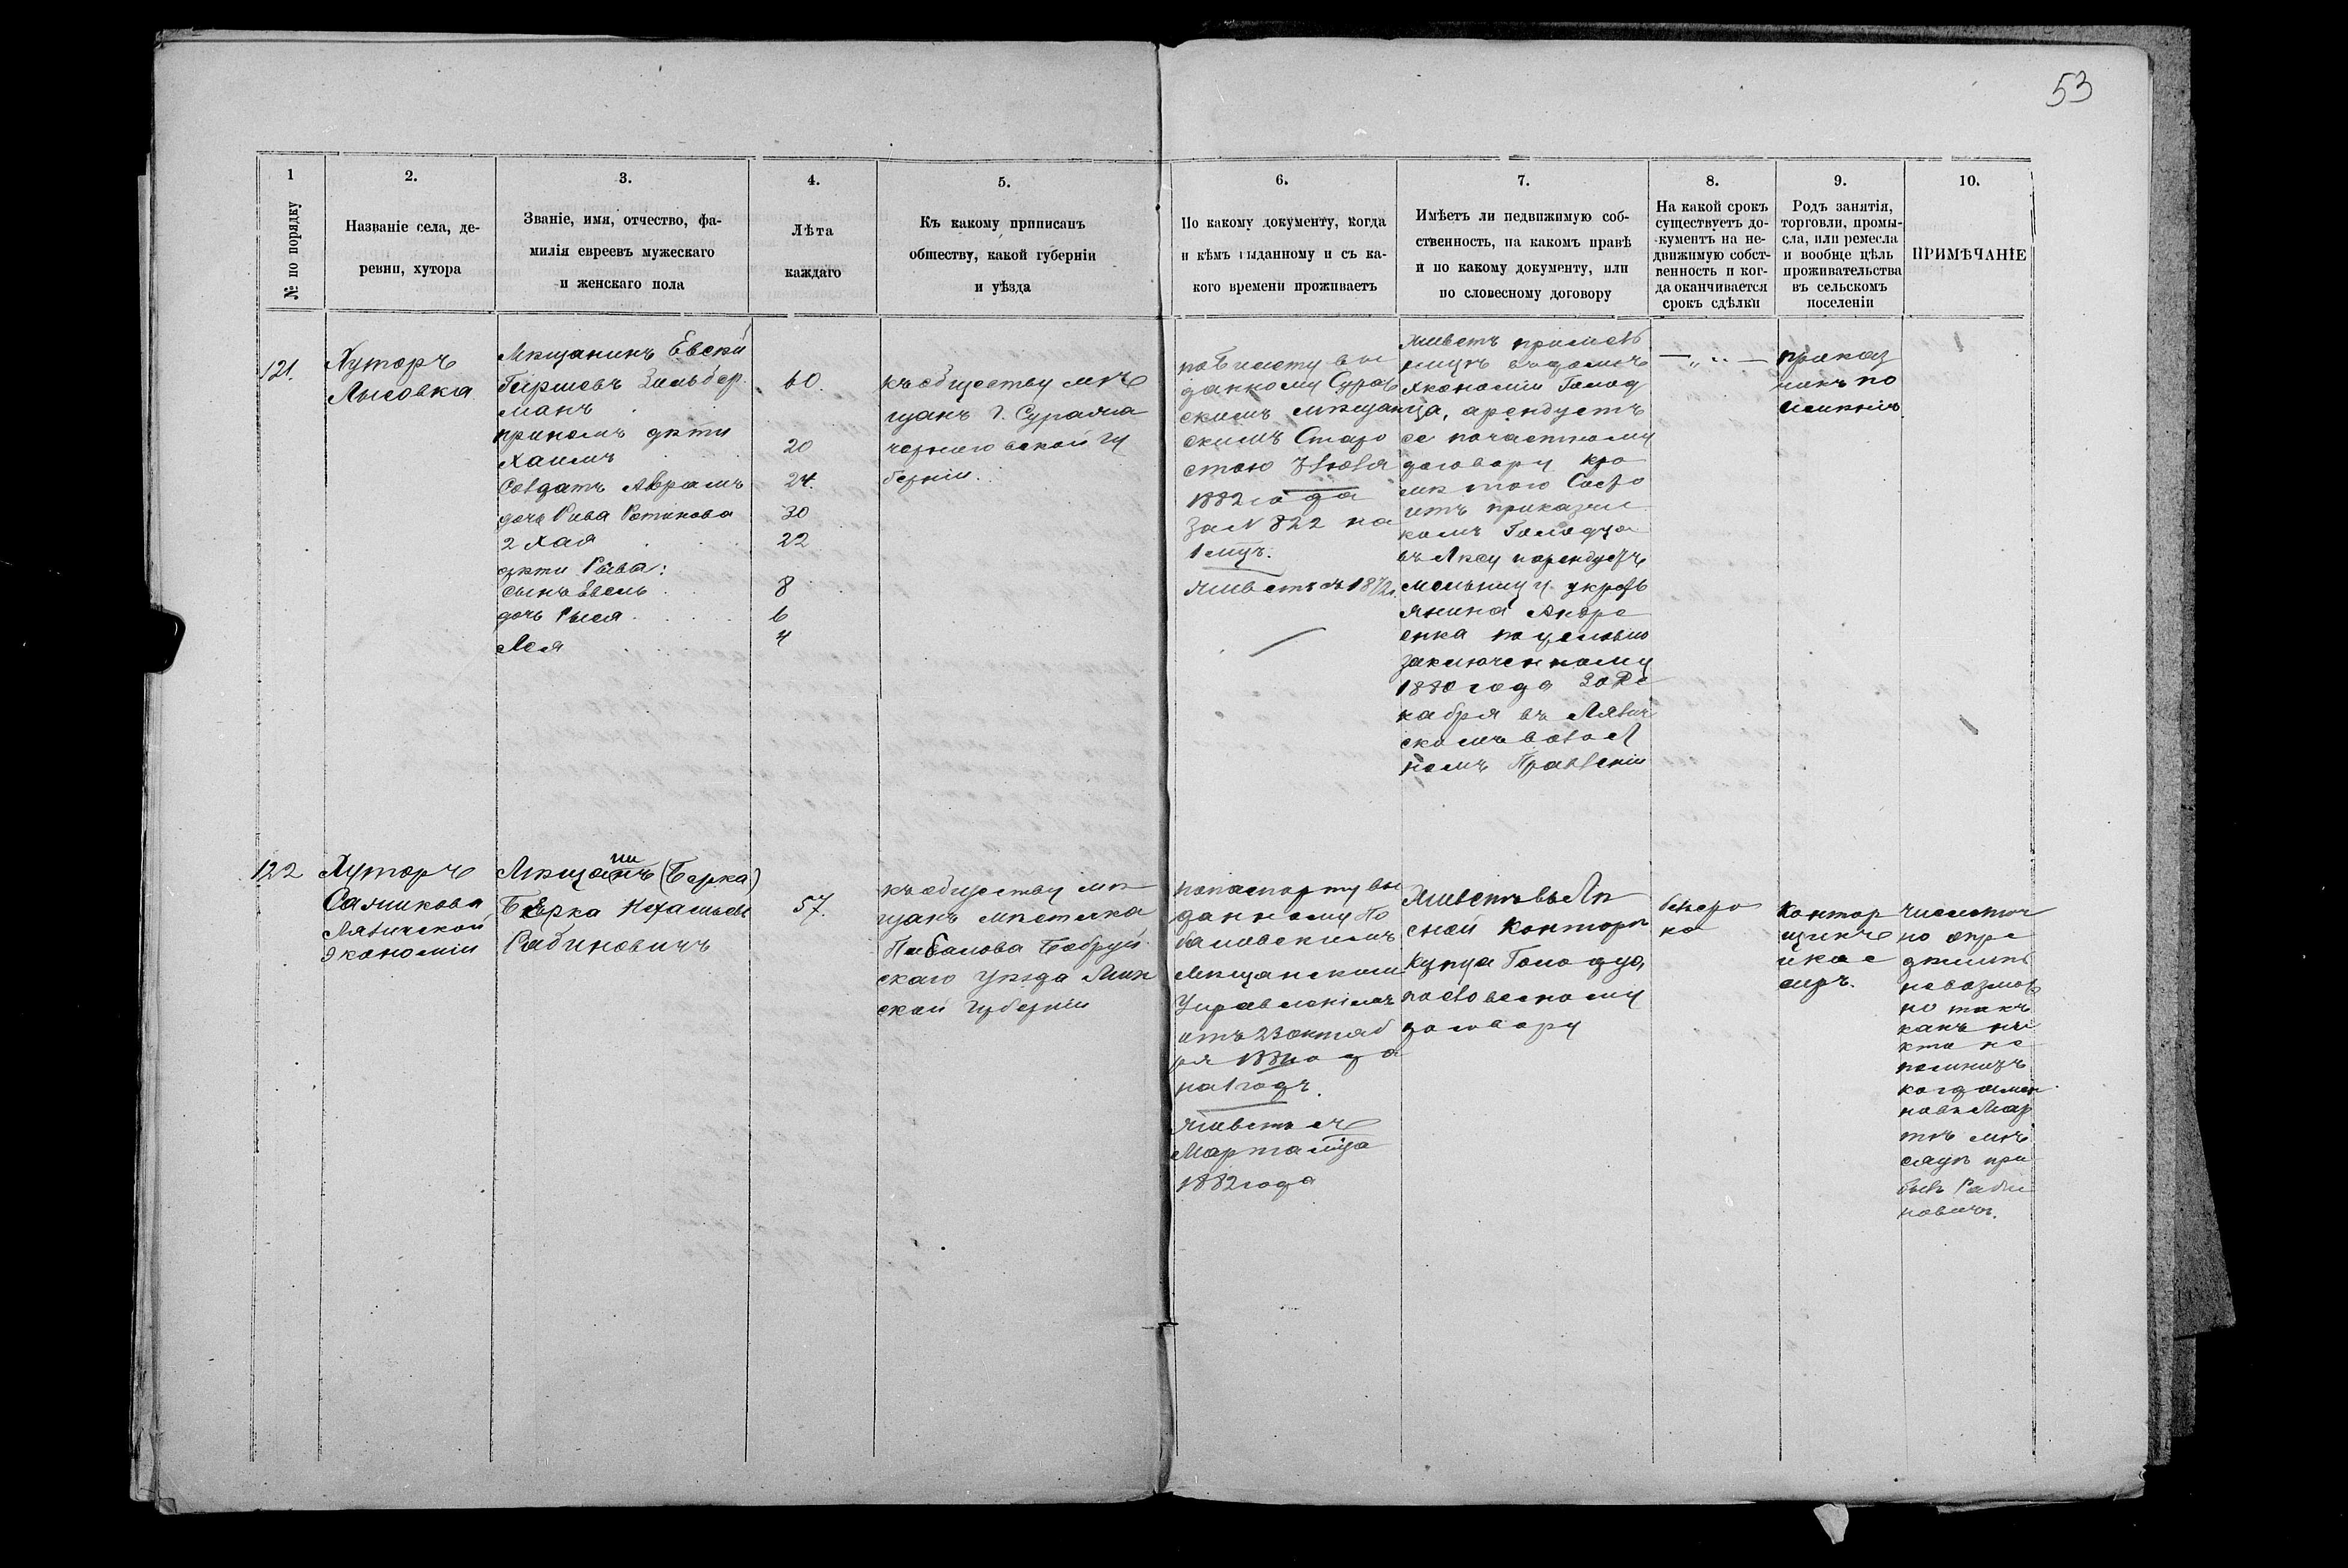 53
1
№ по порядку
2.
Названіе села, де-
ревни, хутора
3.
Званіе, имя, отчество, фа-
милія евреевъ мужескаго
и женскаго пола
4.
Лѣта
каждаго
5.
Къ какому приписанъ
обществу, какой губерніи
и уѣзда
6.
По какому документу, когда
и кѣмъ выданному и съ ка-
кого времени проживаетъ
7.
Имѣетъ ли недвижимую соб-
ственность, на какомъ правѣ
и по какому документу, или
по словесному договору
8.
На какой срокъ
существуетъ до-
кументъ на не-
движимую собст-
венность и ког-
да оканчивается
срокъ сдѣлки
9.
Родъ занятія,
торговли, промы-
сла, или ремесла
и вообще цѣль
проживательства
въ сельскомъ
поселеніи
10.
ПРИМѢЧАНІЕ
121.
Хуторъ
Лысовка
Мѣщанинъ Евсей
Гиршовъ Зильбер
манъ
приномъ дѣти
Хаимъ
Солдатъ Абрамъ
дочь Рива
2 Хая
дѣти Рива:
сынъ
дочь Рися
Ася
60.
20
24.
30
22
8
6
4
къ обществу мѣ
щанъ г. Суража
черниговской гу
берніи.
по билету вы
данному Сураж
скимъ мѣщан
скимъ Старо
стою 7 Іюля
1882 года
за № 822 на
1 мцъ.
Живетъ съ 1872 г.
Живетъ
Экономіи Голод
ца, арендуетъ
ее по частному
договору кро
мѣ того Состо
итъ приказчи
комъ Голодца
въ лѣсу и арендуетъ
мельницу у кресть
янина Андре
енка по условію
заключенному
1880 года 30 Де
кабря въ Лялич
скомъ Волост
номъ Правленіи
— „ —
приказ
чикъ по
имѣнію
122
Хуторъ
Сашикова
Ляличской
Экономіи
Мѣщанинъ (Берка)
Берка
Рабиновичъ
57.
къ обществу мѣ
щанъ мѣстечка
Бобруй
скаго уѣзда Мин
ской губерніи
по паспорту вы
данному
Мѣщанскимъ
Управленіемъ
отъ 23 октяб
ря года
на 1 годъ.
Живетъ съ
Марта м-ца
1882 года
Живетъ въ Лѣ
сной Конторѣ
Купца Голодца,
по словесному
договору
Контор
щикъ
и кас
сиръ.
число точ
но опре
дѣлить
невозмож
но такъ
какъ ни
кто не
помнитъ
когда имен
но въ Мар
тѣ мѣ
сяцѣ при
былъ Раби
новичъ.